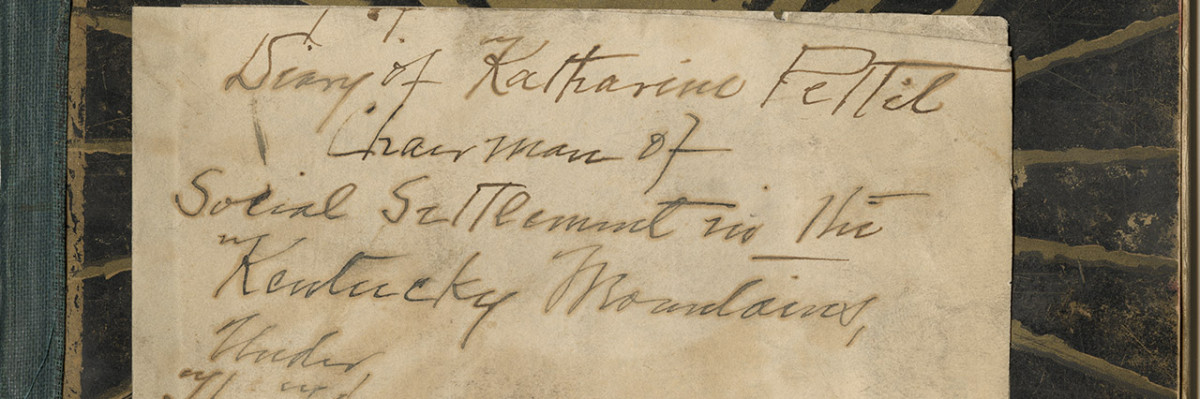 Diary of Katharine Pettit
Chairman of
Social Settlement in the
Kentucky Mountains,
Under